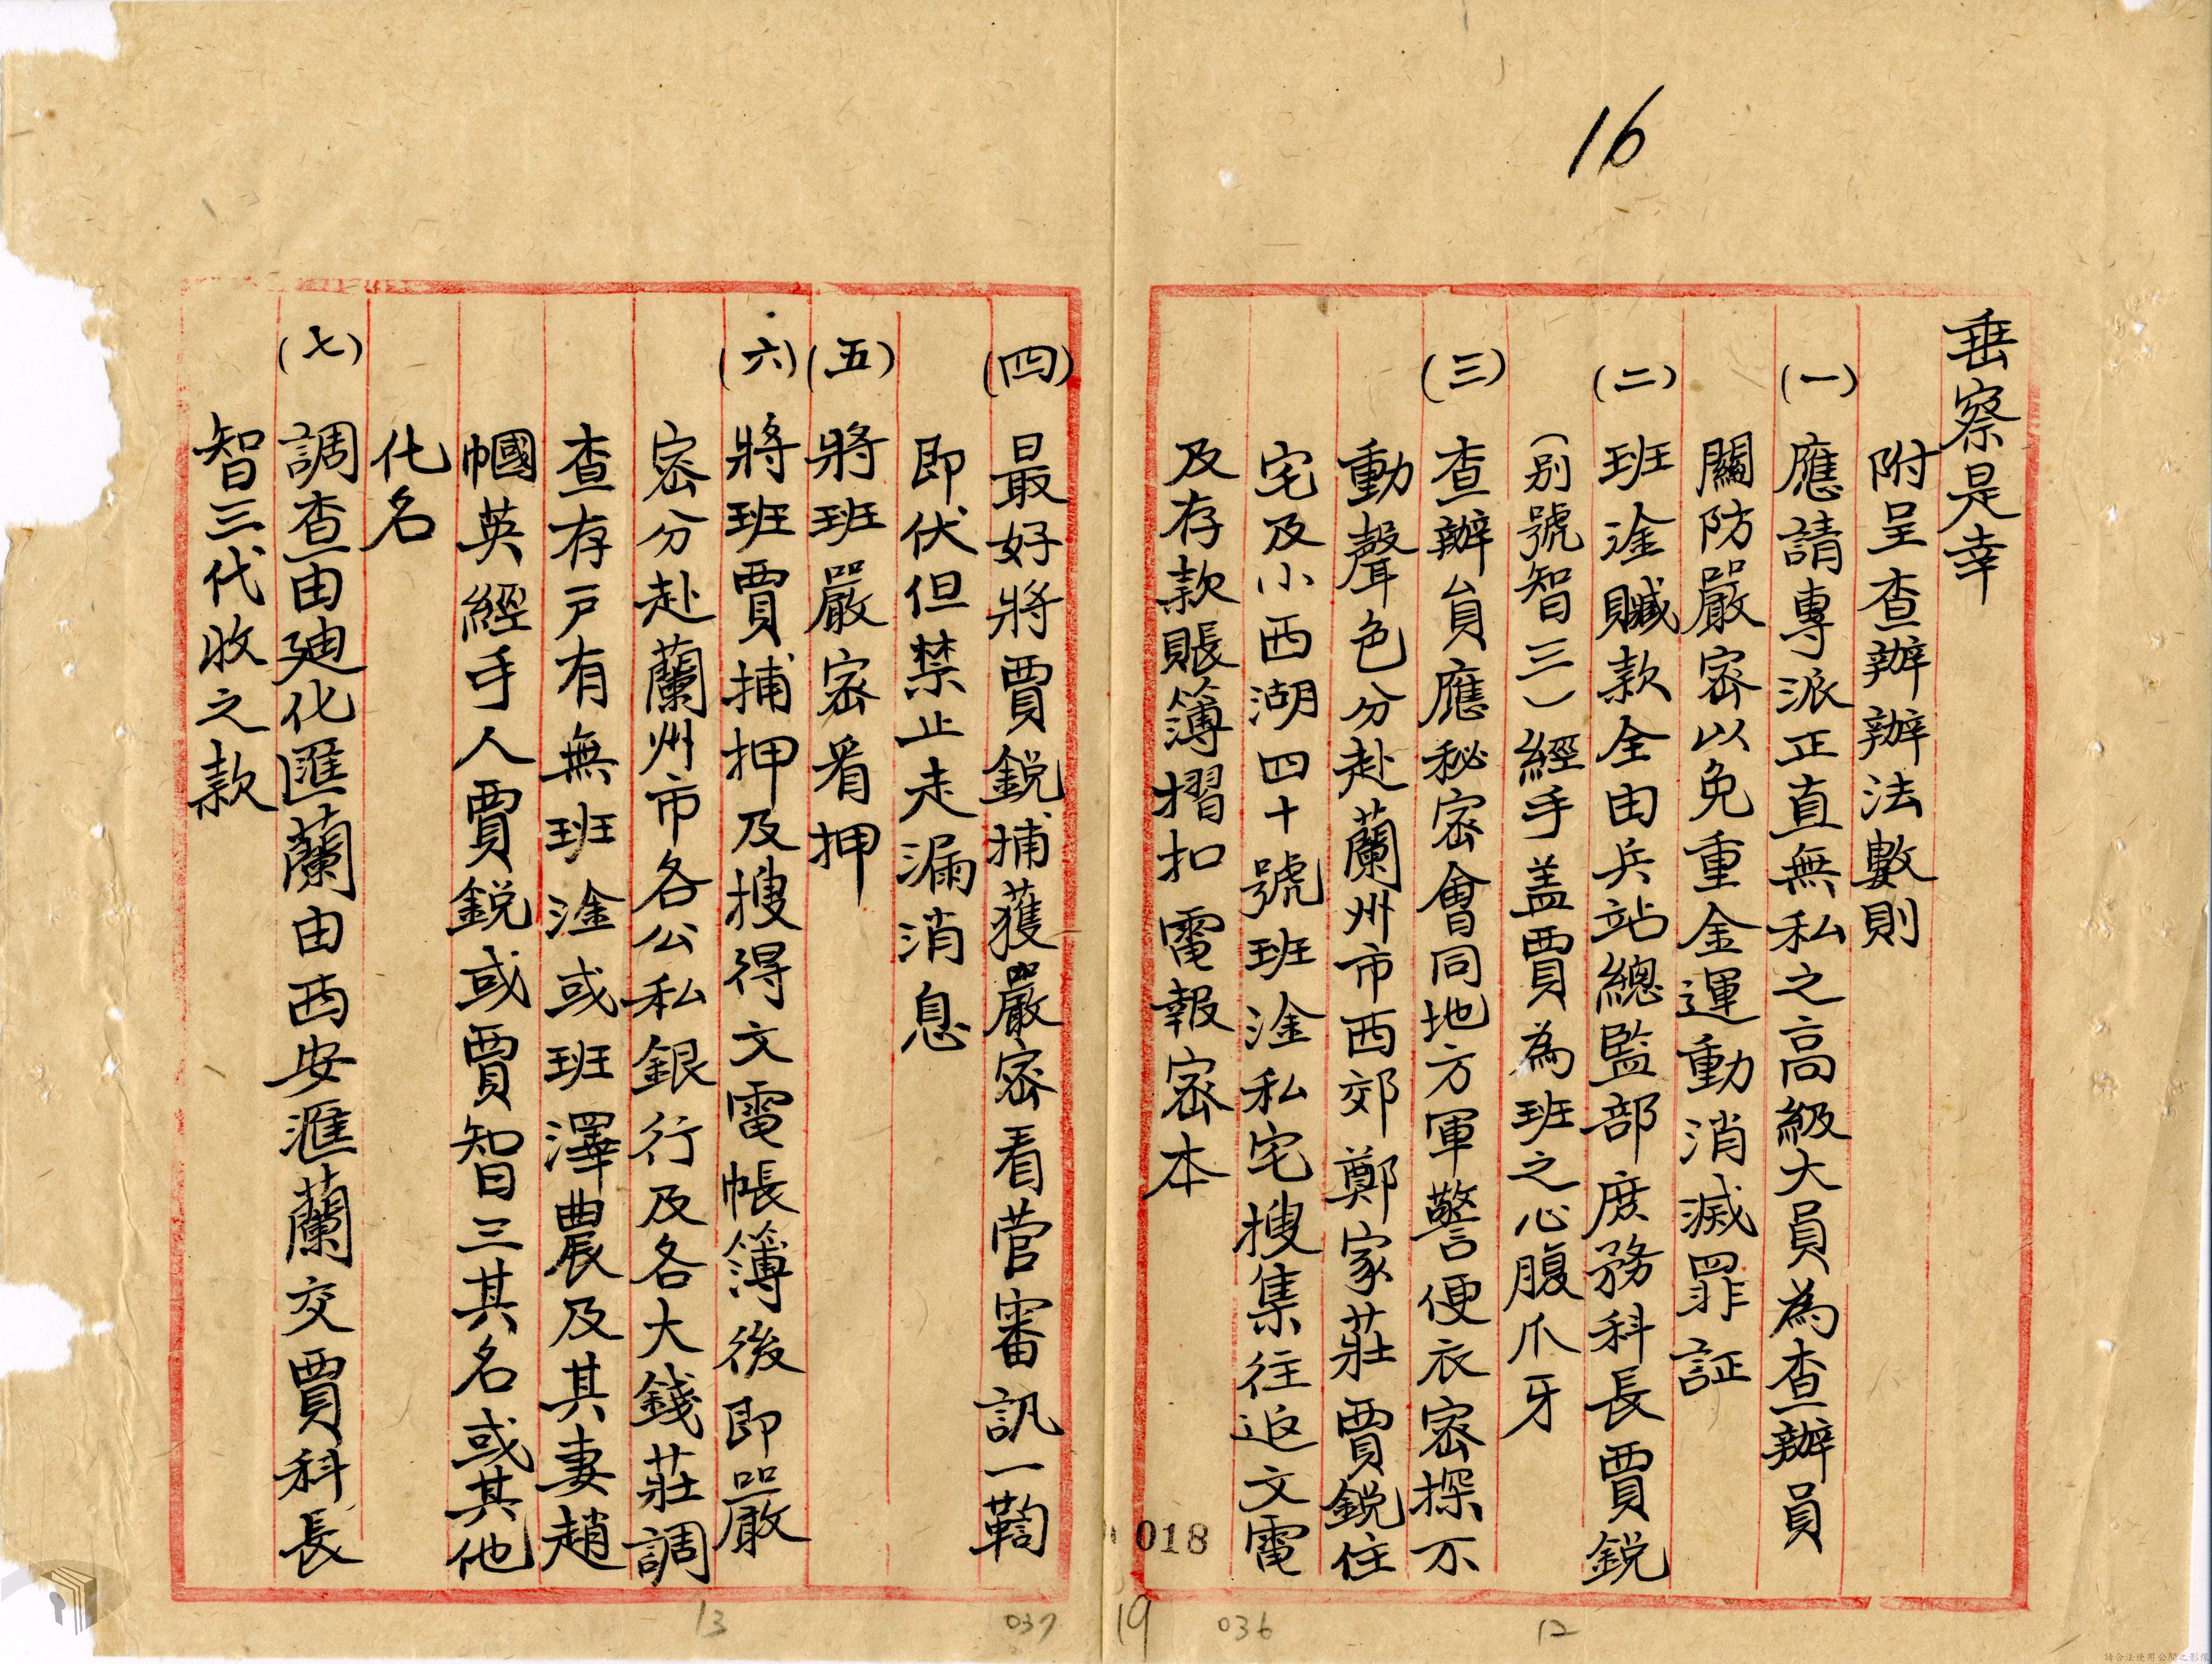 16
垂察是幸
附呈查辦辦法數則
(一)應請專派正直無私之高級大員為查辦員
關防嚴密以免重金運動消滅罪証
(二)班淦贓款全由兵站總監部庶務科長賈銳
(別號智三)經手盖賈為班之心腹爪牙
(三)查辦員應秘密會同地方軍警便衣密探不
動聲色分赴蘭州市西郊鄭家莊賈銳住
宅及小西湖四十號班淦私宅搜集往返文電
及存款賬簿摺扣電報密本
(四)最好將賈銳捕獲嚴密看管審訊一鞫
即伏但禁止走漏消息
(五)將班嚴密看押
(六)將班賈捕押及搜得文電帳簿後即嚴
密分赴蘭州市各公私銀行及各大錢莊調
查存戸有無班淦或班澤農及其妻趙
幗英經手人賈銳或賈智三其名或其他
化名
(七)調查由廸化匯蘭由西安滙蘭交賈科長
智三代收之款
018
19
036
12
037
13
請合法使用公開之影像